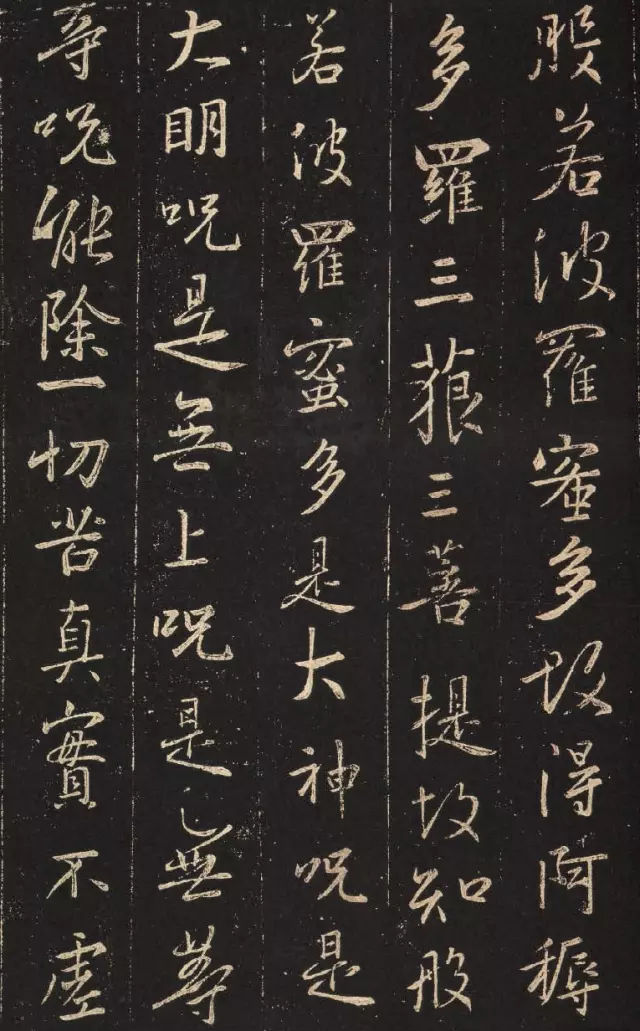 般若波羅蜜多故得阿耨
多羅三藐三菩提故知般
若波羅蜜多是大神呪是
大明呪是無上呪是無等
等呪能除一切苦真實不虛